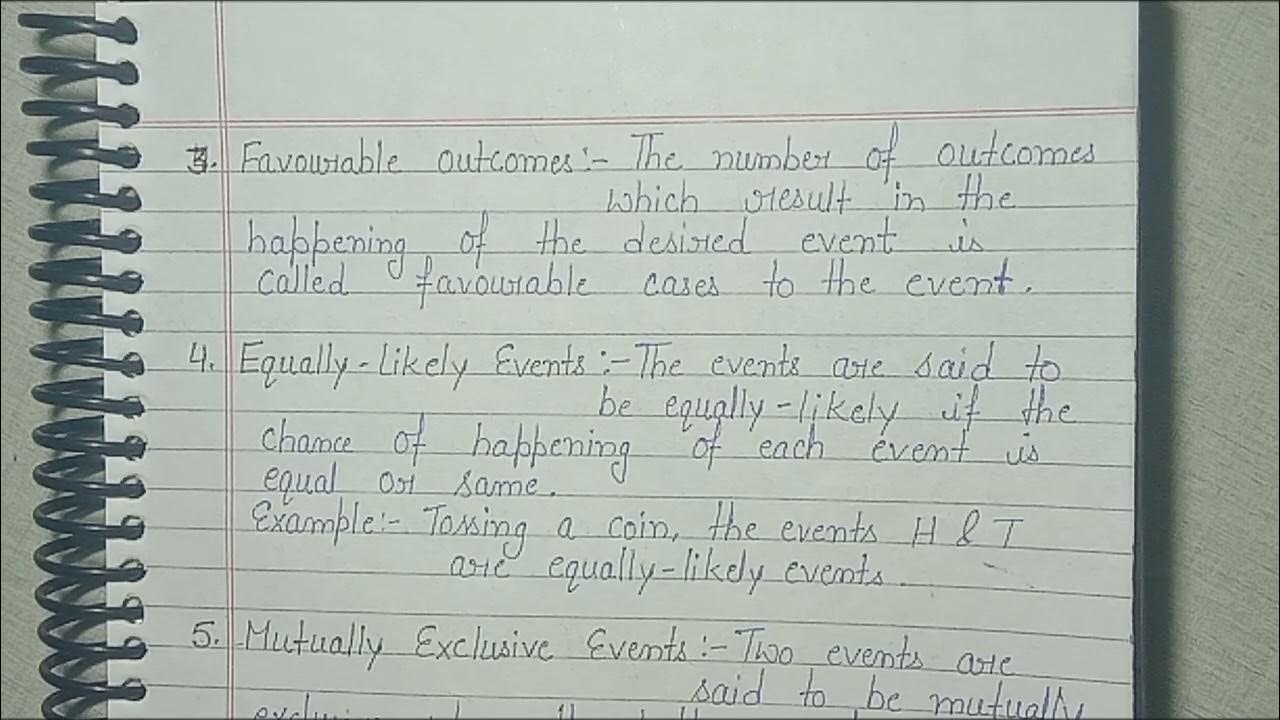 3. Favourable outcomes:- The number of outcomes
which result in the
happening of the desired event is
called favourable cases to the event.
4. Equally-likely Events:- The events are said to
be equally-likely if the
chance of happening of each event is
equal or same.
Example:- Tossing a coin, the events H & T
are equally-likely events.
5. Mutually Exclusive Events:- Two events are
said to be mutually